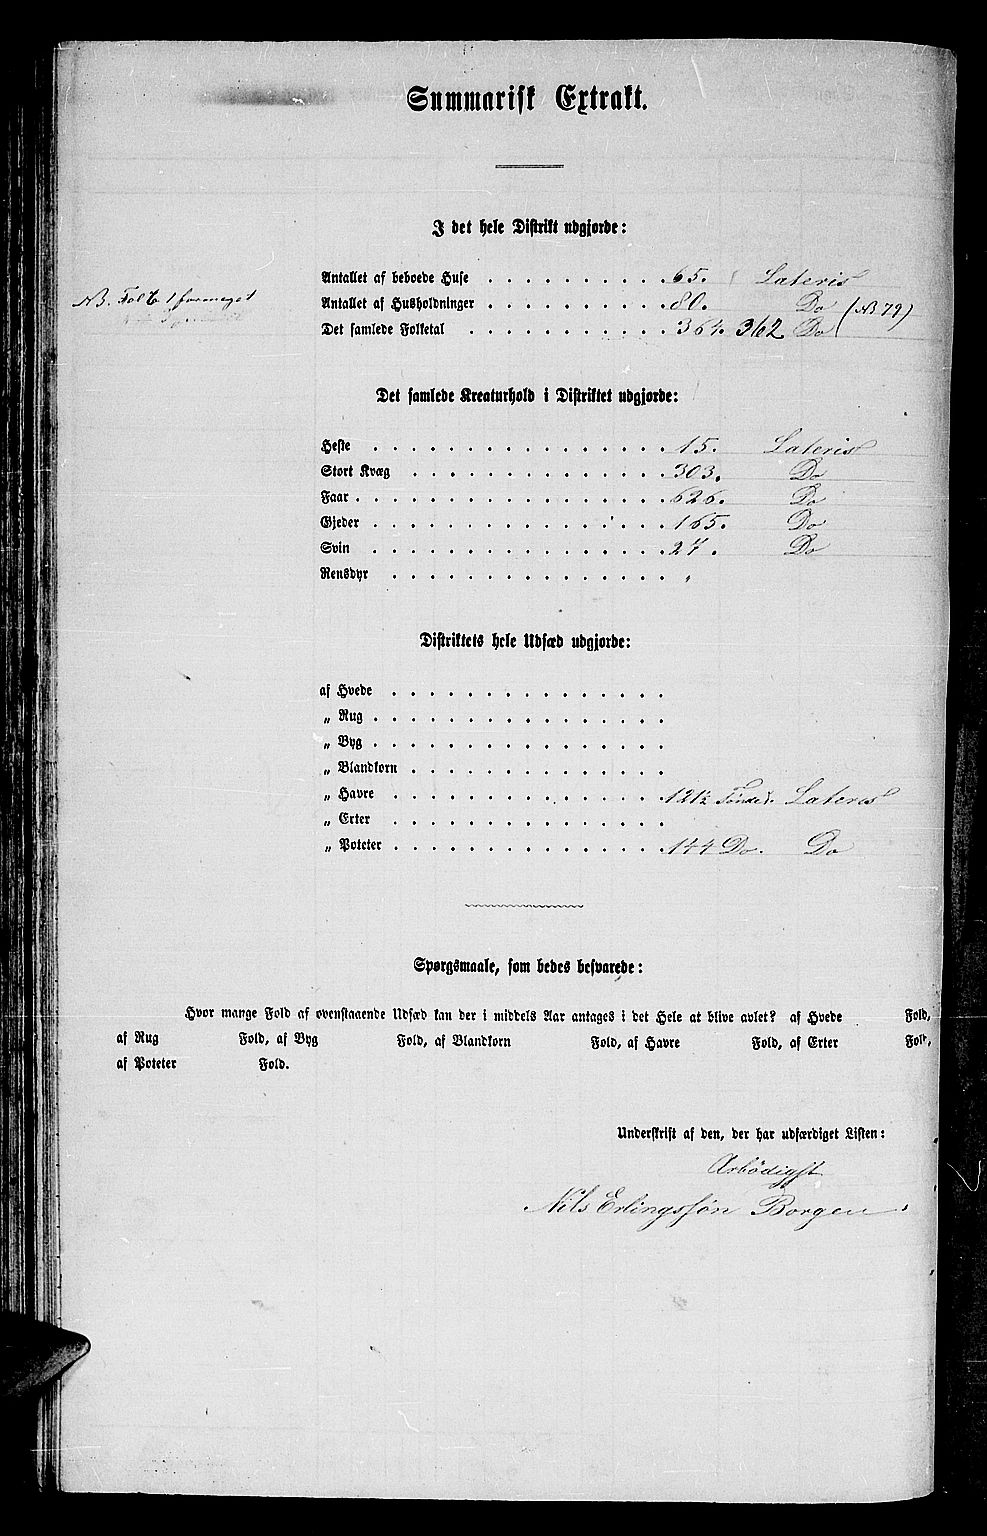 Summarisk Extrakt.
I det hele Distrikt udgjorde:
Antallet af beboede Huse . . . . . . . . . . 65. Lateris
NB. Fol 6 1 formeget
Antallet af Husholdninger . . . . . . . . . . 80. Do (NB 79)
Det samlede Folketal . . . . . . . . . . . 364. 362 Do
Det samlede Kreaturhold i Distriktet udgjorde:
Heste . . . . . . . . . . . . . . . . 15. Lateris
Stort Kvæg . . . . . . . . . . . . . . 303. Do
Faar . . . . . . . . . . . . . . . . . 626. Do
Gjeder . . . . . . . . . . . . . . . . 165. Do
Svin . . . . . . . . . . . . . . . . 27. Do
Rensdyr . . . . . . . . . . . . . . . "
Distriktets hele Udsæd udgjorde:
af Hvede . . . . . . . . . . . . . . .
„ Rug . . . . . . . . . . . . . . . .
„ Byg . . . . . . . . . . . . . . . .
„ Blandkorn . . . . . . . . . . . . . .
„ Havre . . . . . . . . . . . . . . . 121½ Tønder Lateris
„ Erter . . . . . . . . . . . . . . .
„ Poteter . . . . . . . . . . . . . . . 144 Do. Do
Spørgsmaale, som bedes besvarede:
Hvor mange Fold af ovenstaaende Udsæd kan der i middels Aar antages i det Hele at blive avlet? af Hvede Fold,
af Rug Fold, af Byg Fold, af Blandkorn Fold, af Havre Fold, af Erter Fold,
af Poteter Fold.
Underskrift af den, der har udfærdiget Listen:
Ærbödigst
Nils Erlingssön Borgen